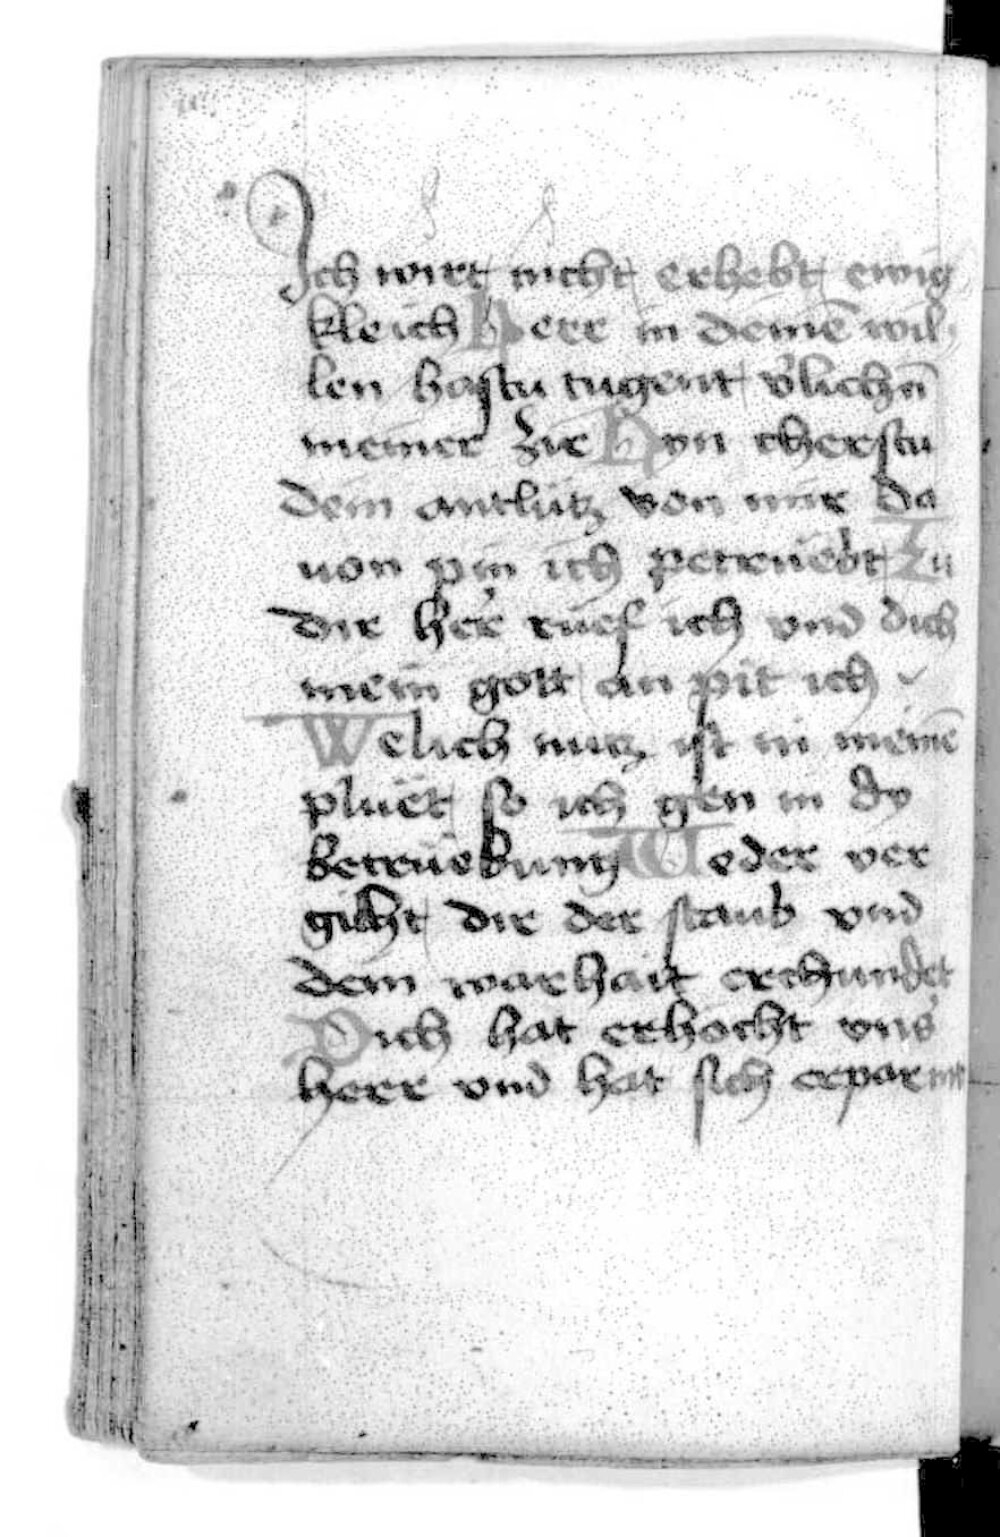 Ich wirt nicht erhebt ewig
kleich Herr in deinē wil
len hastu tugent v̓lichn̄
meiner zir Hyn cherstu
dein antlütz von mir da
uon pin ich petruebt Zu
dir her̓ ruef ich vnd dich
mein gott an pit ich
Welich nutz ist in meinē
pluet so ich gen in dy
betruebung Weder ver
gicht dir der staub vnd
dein warhait erchundet
Dich hat erhöcht vns̓
herr vnd hat sich erparmt